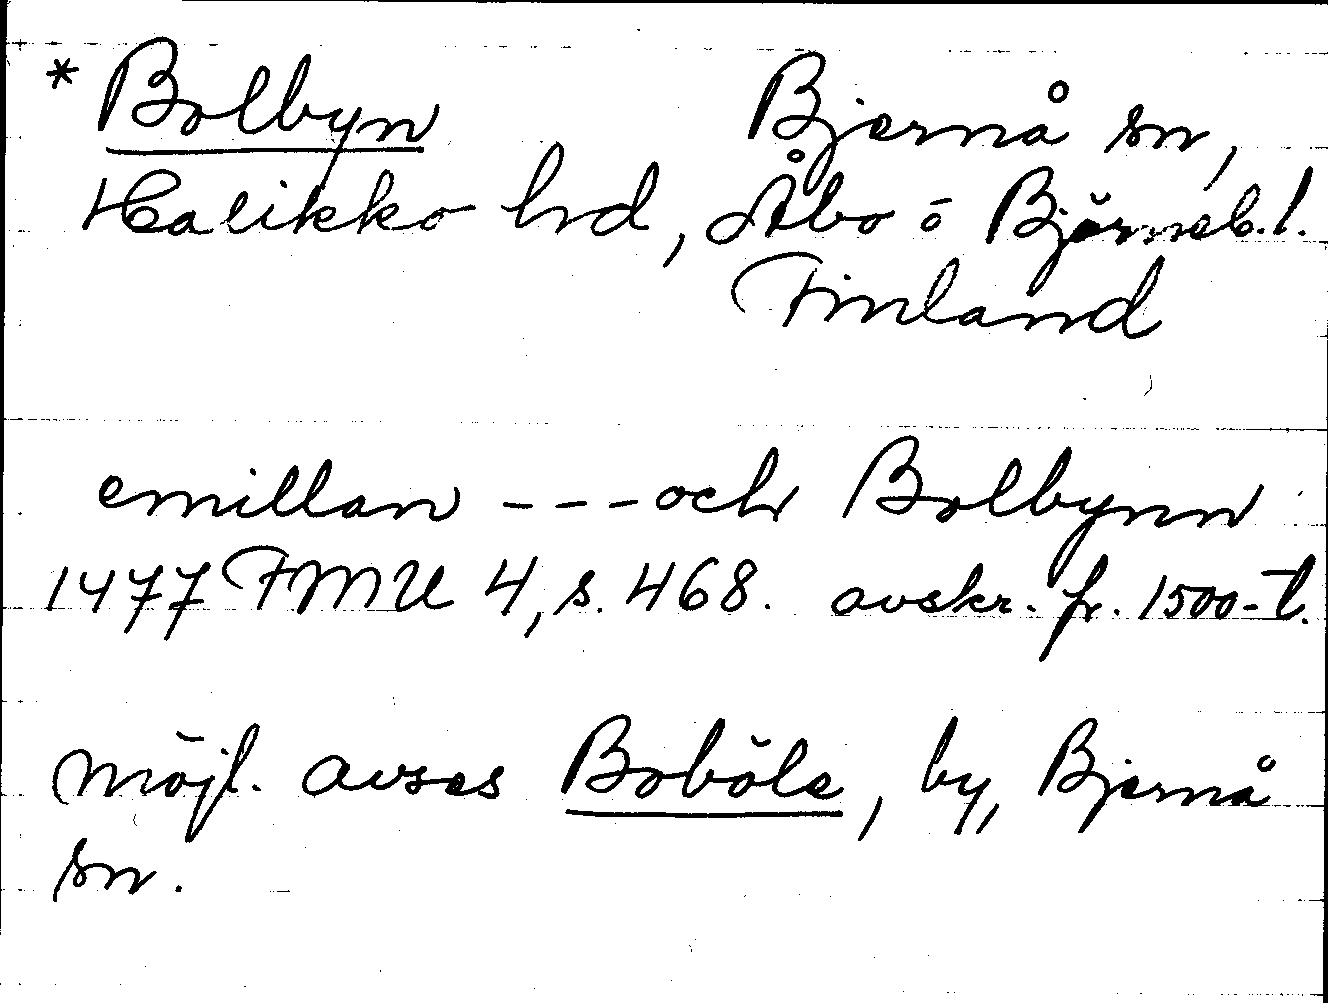 * Bolbyn Bjernå sn,
Halikko hd, Åbo o Björneb. l.
Finland
emillan --- och Bolbynn
1477 FMU 4, s. 468. avskr. fr. 1500-t.
möjl. avses Boböle, by, Bjernå
sn.